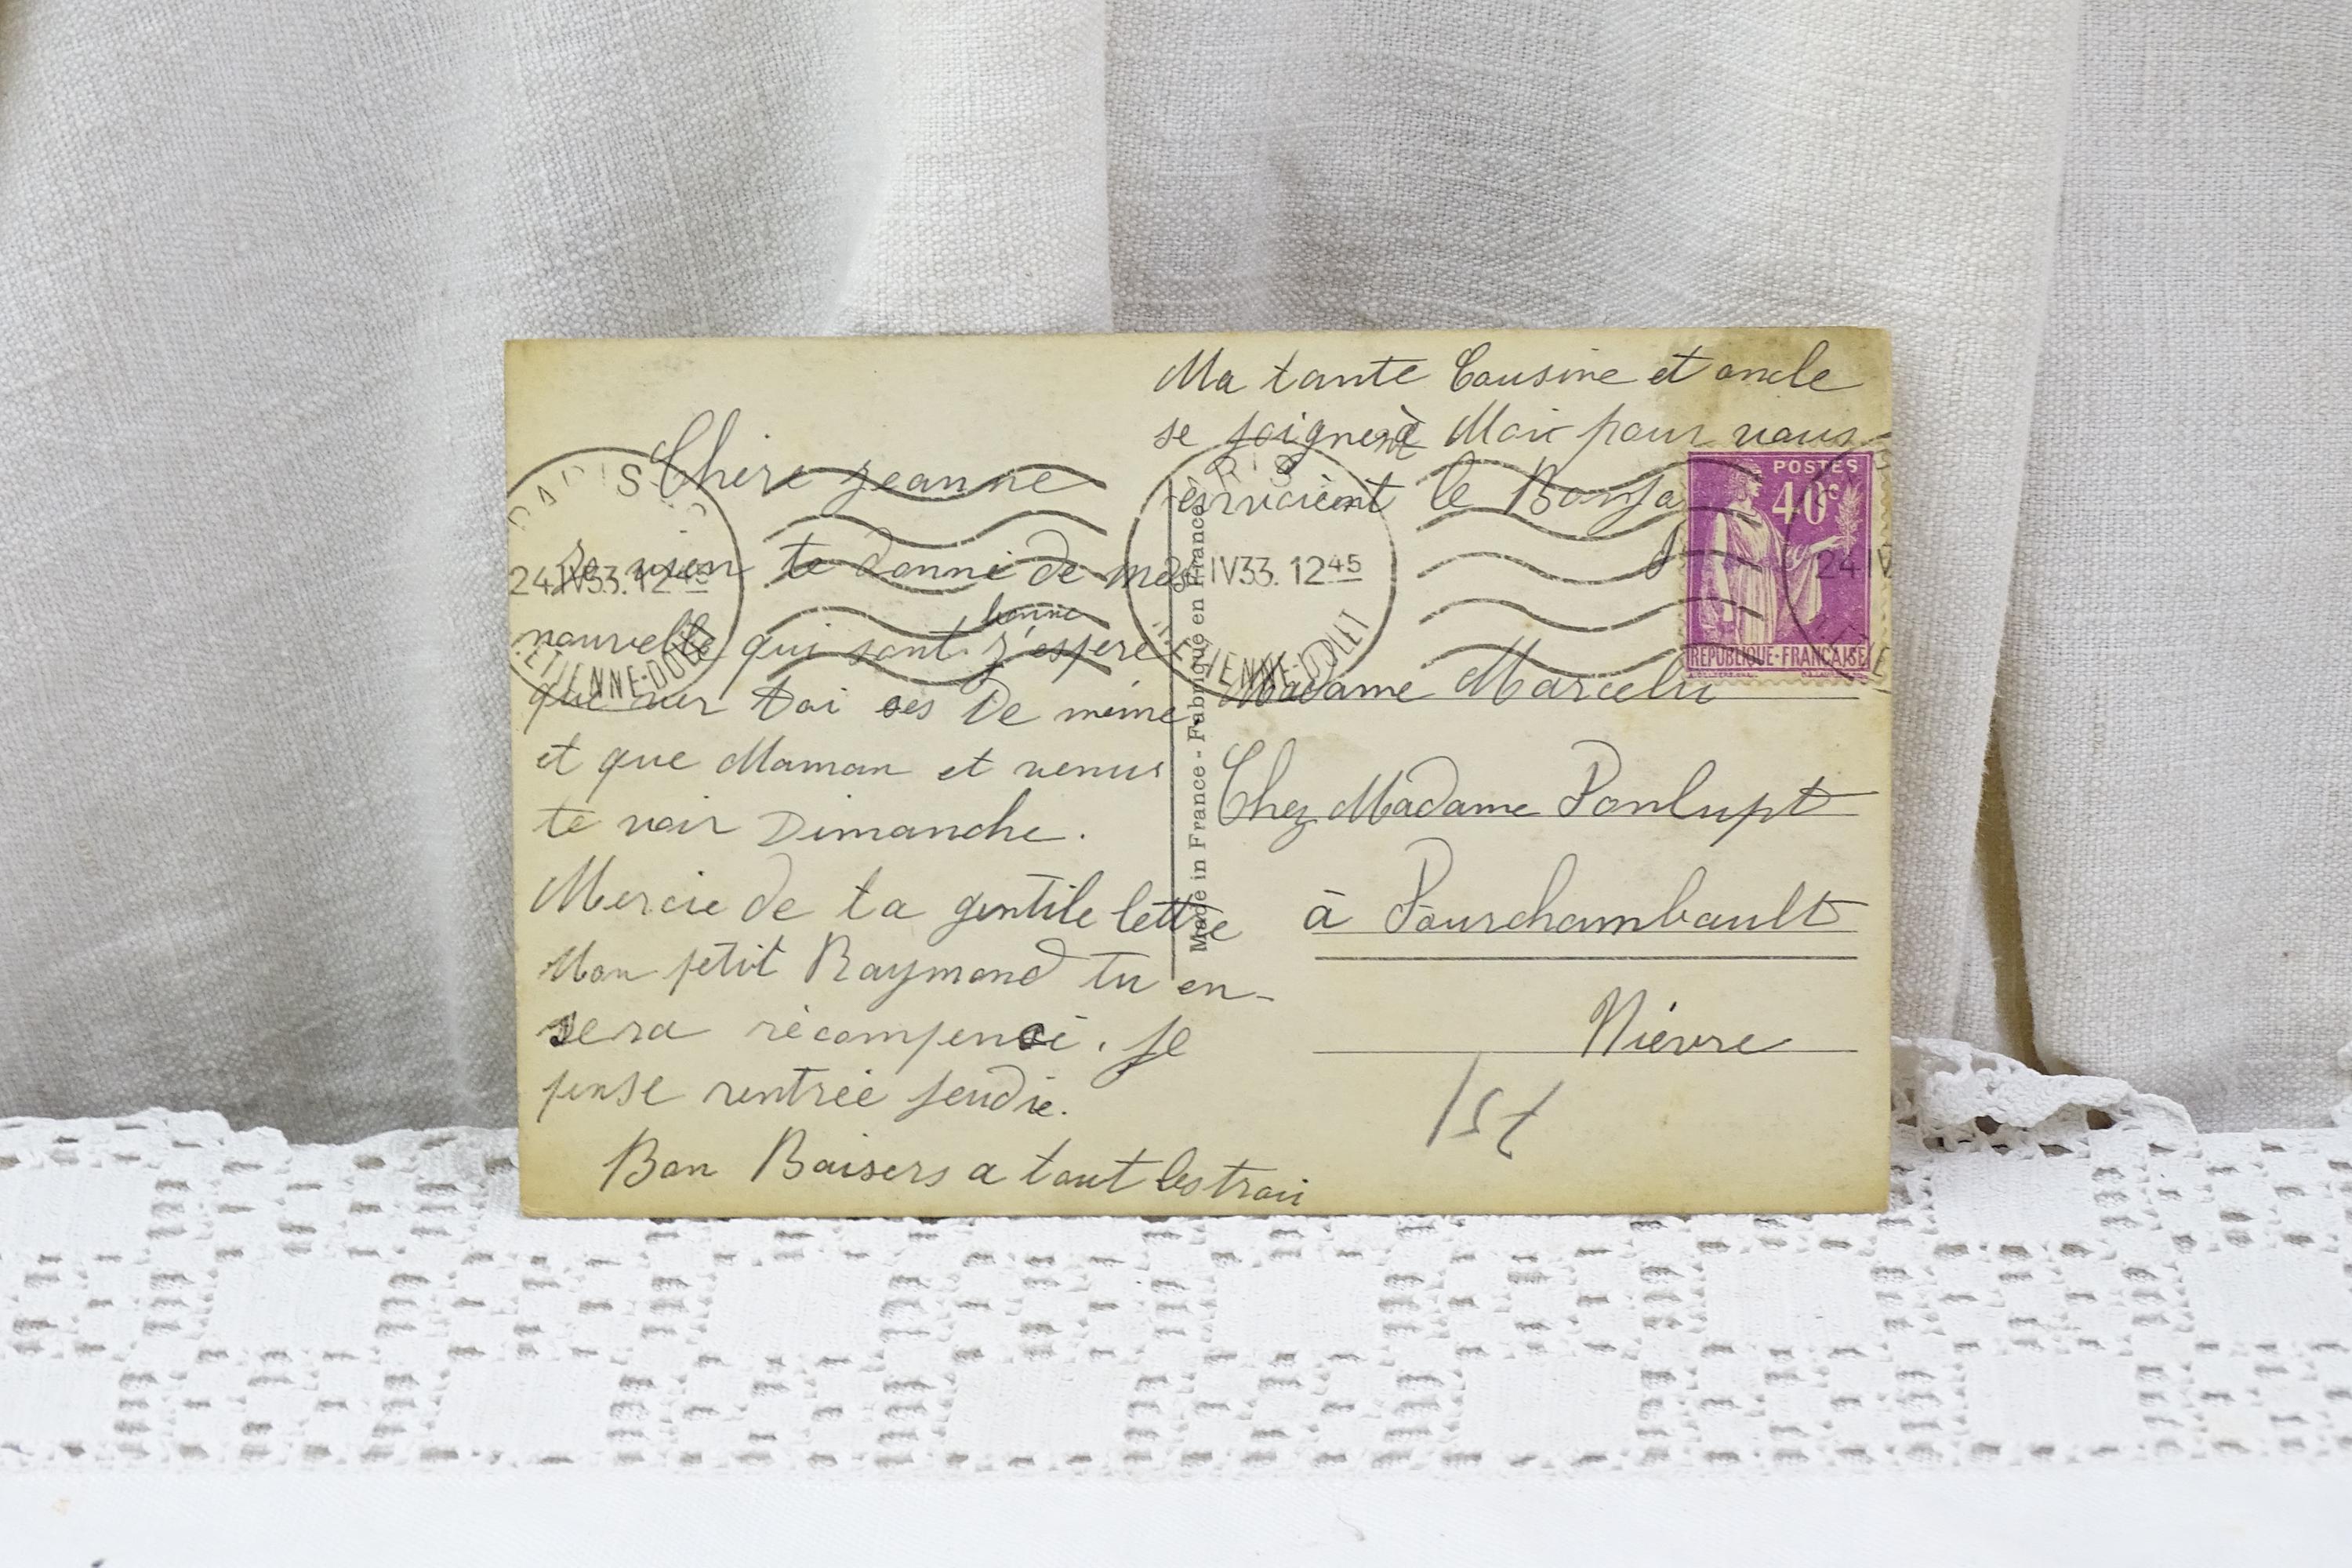 Ma tante Cousine et oncle
se joignent à Moi pour vous
envoieint le Bonjo
Chère Jeanne
Je vien te donné de mes
nouvelle qui sont bonne j'espère
que sur toi ses De mème
et que Maman et venus
te voir Dimanche.
Mercie de ta gentile lettre
Mon petit Raymond tu en-
sera récompensé. Je
pense rentrée Jeudie.
Bon Baisers a tout les troi
Made in France - Fabriqué en France
PARIS
24 IV33. 12 45
ETIENNE-DOLET
PARIS
24 IV33. 12 45
ETIENNE-DOLET
POSTES
40c
REPUBLIQUE-FRANCAISE
24 IV
Madame Marcelu
Chez Madame Ponlupt
à Fourchambault
Nièvre